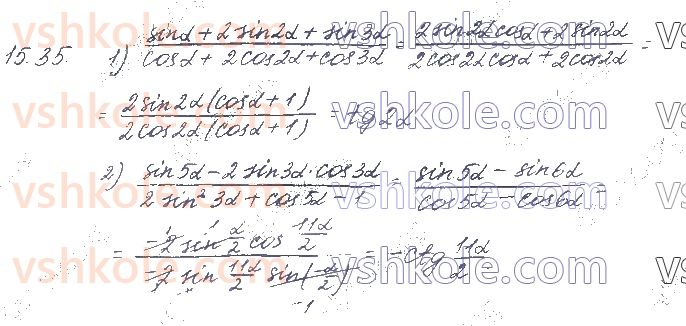 15.35. 1) (sinα + 2 sin2α + sin3α)/(cosα + 2cos2α + cos3α) = (2sin2α cosα + 2sin2α)/(2cos2α cosα + 2cos2α) =
= (2sin2α(cosα + 1))/(2cos2α(cosα + 1)) = tg2α.
2) (sin5α - 2 sin3α · cos3α)/(2 sin² 3α + cos5α - 1) = (sin5α - sin6α)/(cos5α - cos6α) =
= (-2 sin α/2 cos 11α/2)/(-2 sin 11α/2 sin(-α/2)) = -ctg 11α/2
vshkole.com vshkole.com vshkole.com
vshkole.com vshkole.com vshkole.com
vshkole.com vshkole.com vshkole.com
vshkole.com vshkole.com vshkole.com